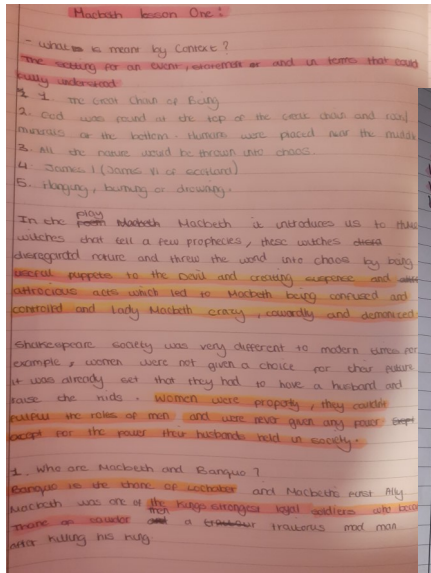 Macbeth lesson One:
- What is meant by Context?
The setting for an event, statement or and in terms that could
fully understood
1. The Great Chain of Being
2. God was found at the top of the chain and
minerals at the bottom. Humans were placed near the middle
3. All the nature would be thrown into chaos.
4. James I (James VI of Scotland)
5. Hanging, burning or drowning.
In the play Macbeth it introduces us to three
witches that tell a few prophecies, these witches
disregarded nature and threw the world into chaos by being
puppets to the Devil and creating suspense and
attrocious acts which led to Macbeth being confused and
controlled and Lady Macbeth crazy, cowardly and demonized.
Shakespeare society was very different to modern times for
example, women were not given a choice for their future
it was already set that they had to have a husband and
raise the kids. Women were property, they couldn't
fulfill the roles of men and were never given any power
except for the power their husbands held in society.
1. Who are Macbeth and Banquo?
Banquo is the thane of Lochaber and Macbeth's Ally
Macbeth was one of the kings strongest loyal soldiers who
Thane of cawdor then a traitorus mad man
after killing his king.